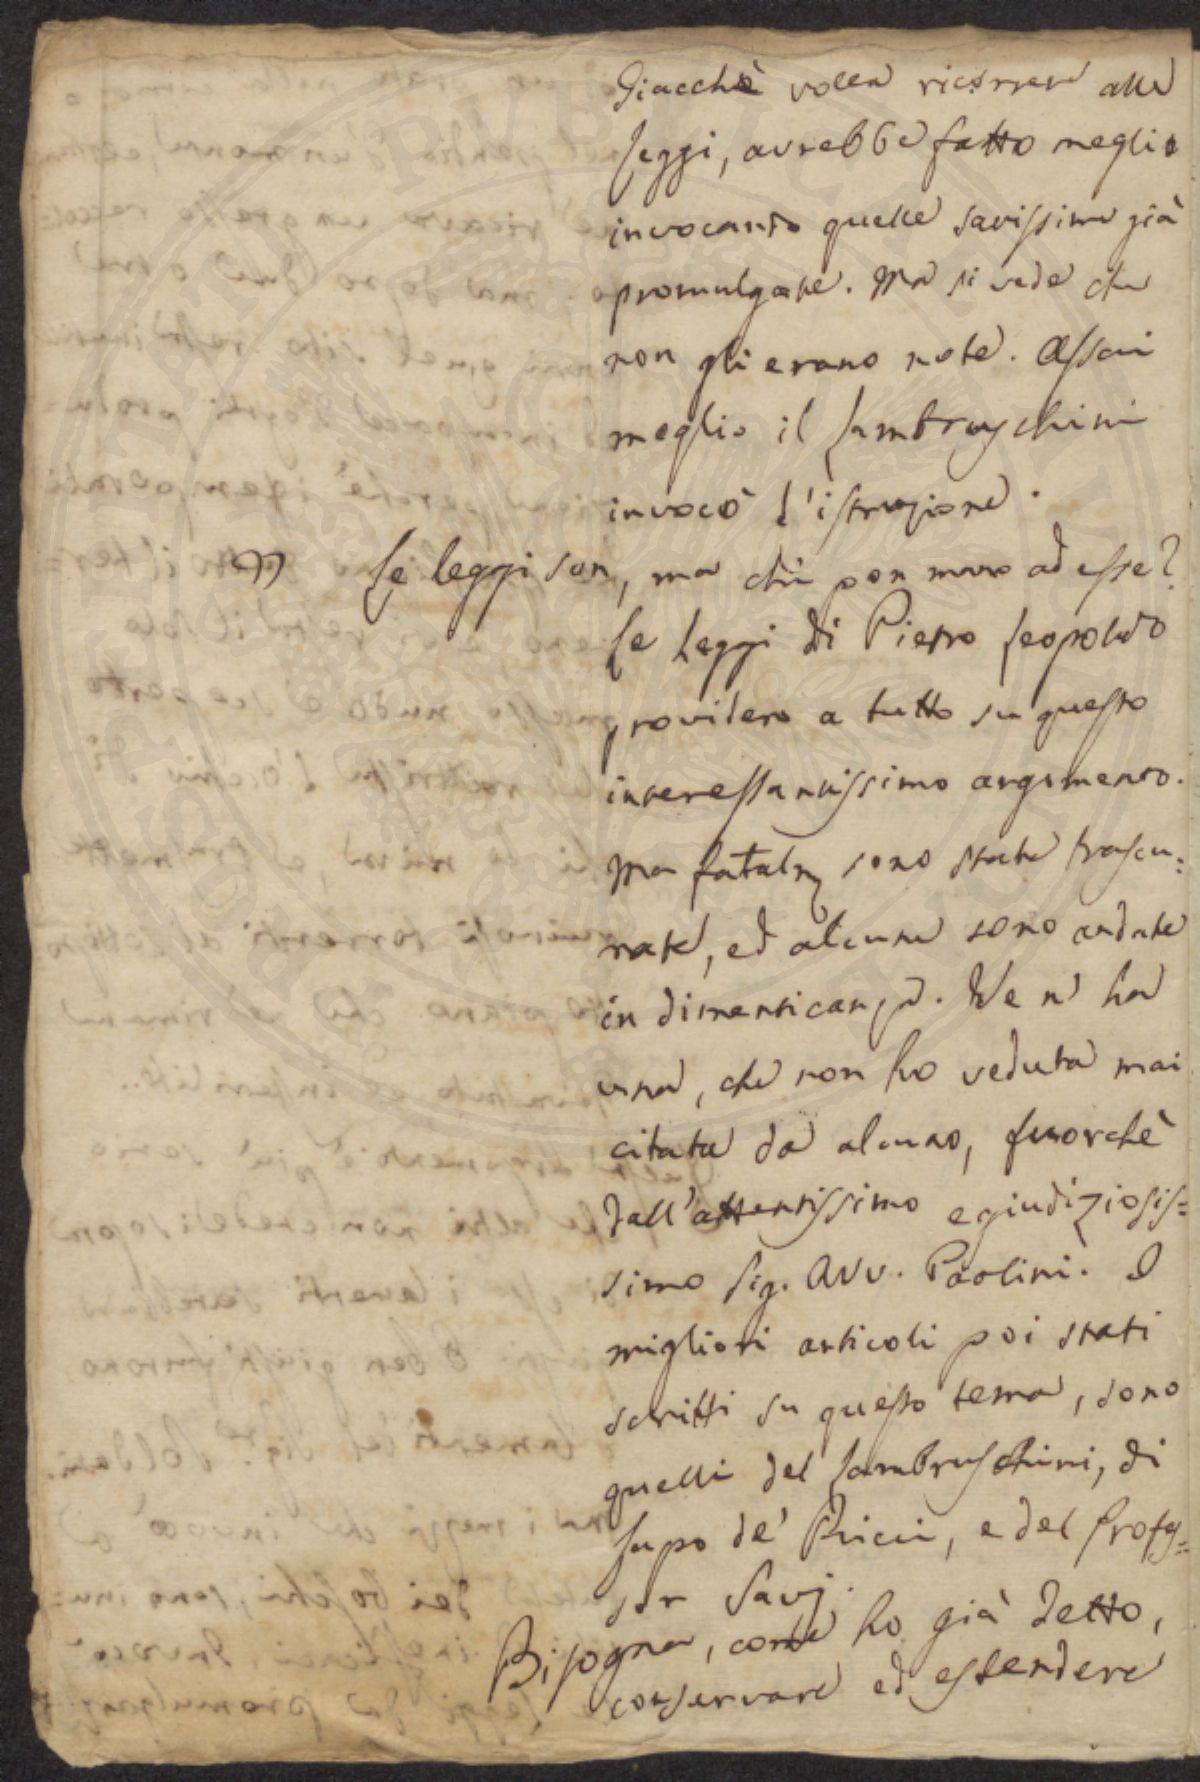 Giacchè volea ricorrere alle
leggi, avrebbe fatto meglio
invocando quelle savissime già
promulgate. Ma si vede che
non gli erano note. Assai
meglio il Lambruschini
invocò l'istruzione.
" Le leggi son, ma chi pon mano ad esse?
Le Leggi di Pietro Leopoldo
providero a tutto su questo
interessantissimo argomento.
Ma fatalm sono state trascu=
rate, ed alcune sono andate
in dimenticanza. Ve n' ha
una, che non ho veduta mai
citata da alcuno, fuorchè
dall'attentissimo e giudiziosis=
simo Sig. Avv. Paolini. I
migliori articoli poi stati
scritti su questo tema, sono
quelli del Lambruschini, di
Lapo de' Ricci, e del Profes=
sor Savj.
Bisogna, come ho già detto,
conservare ed estendere